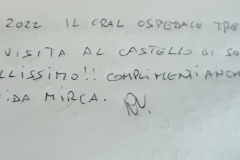 2022 IL CRAL OSPEDALE TRE
VISITA AL CASTELLO DI SO
LLISSIMO!! COMPLIMENTI ANCH
IDA MIRCA.